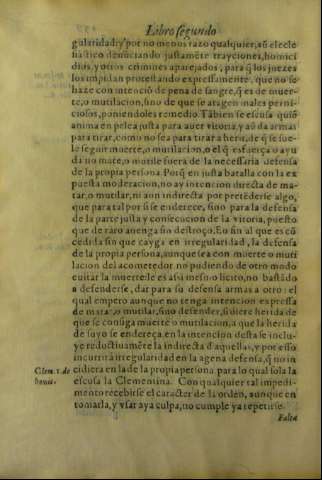 Libro segundo
gularidad: y por no menos razõ qualquier, aũ ecle
siastico denũciando justamẽte trayciones, homici
dios, y otros crimines aparejados, para q̃ los juezes
los impidan protestando expressamente, que no se
haze con intenciõ de pena de sangre, q̃ es de muer-
te, o mutilacion, sino de que se atagen males perni-
ciosos, poniendoles remedio. Tãbien se escusa quiẽ
anima en pelea justa para auer vitoria, y aũ da armas
para tirar, como no sea para tirar a herir, de q̃ se sue-
le seguir muerte, o mutilacion, o el q̃ esfuerça o ayu
da no mate, o mutile fuera de la necessaria defensa
de la propia persona. Porq̃ en justa batalla con la ex
puesta moderacion, no ay intencion directa de ma-
tar, o mutilar, ni aun indirecta por pretẽderse algo,
que para tal por si se enderece, sino para la defensa
de la parte justa y consecucion de la vitoria, puesto
que de raro auenga sin destroço. En fin al que es cõ
cedida sin que cayga en irregularidad, la defensa
de la propia persona, aunque sea con muerte o muti
lacion del acometedor no pudiendo de otro modo
euitar la muerte le es assi mesmo licito, no bastãdo
a defenderse, dar para su defensa armas a otro: el
qual empero aunque no tenga intencion expressa
de matar, o mutilar, sino defender, si diere herida de
que se consiga muerte o mutilacion, a que la herida
de suyo se endereça, en la intencion desta se inclu-
ye reductiuamẽte la indirecta d'aquellas, y por esso
incurrirá irregularidad en la agena defensa, q̃ no in
Clem. 1. de cidiera en la de la propia persona para lo qual sola la
homi. escusa la Clementina. Con qualquier tal impedi-
mento recebirse el caracter de la orden, aunque en
tomarla, y vsar aya culpa, no cumple ya repetirse.
Falta